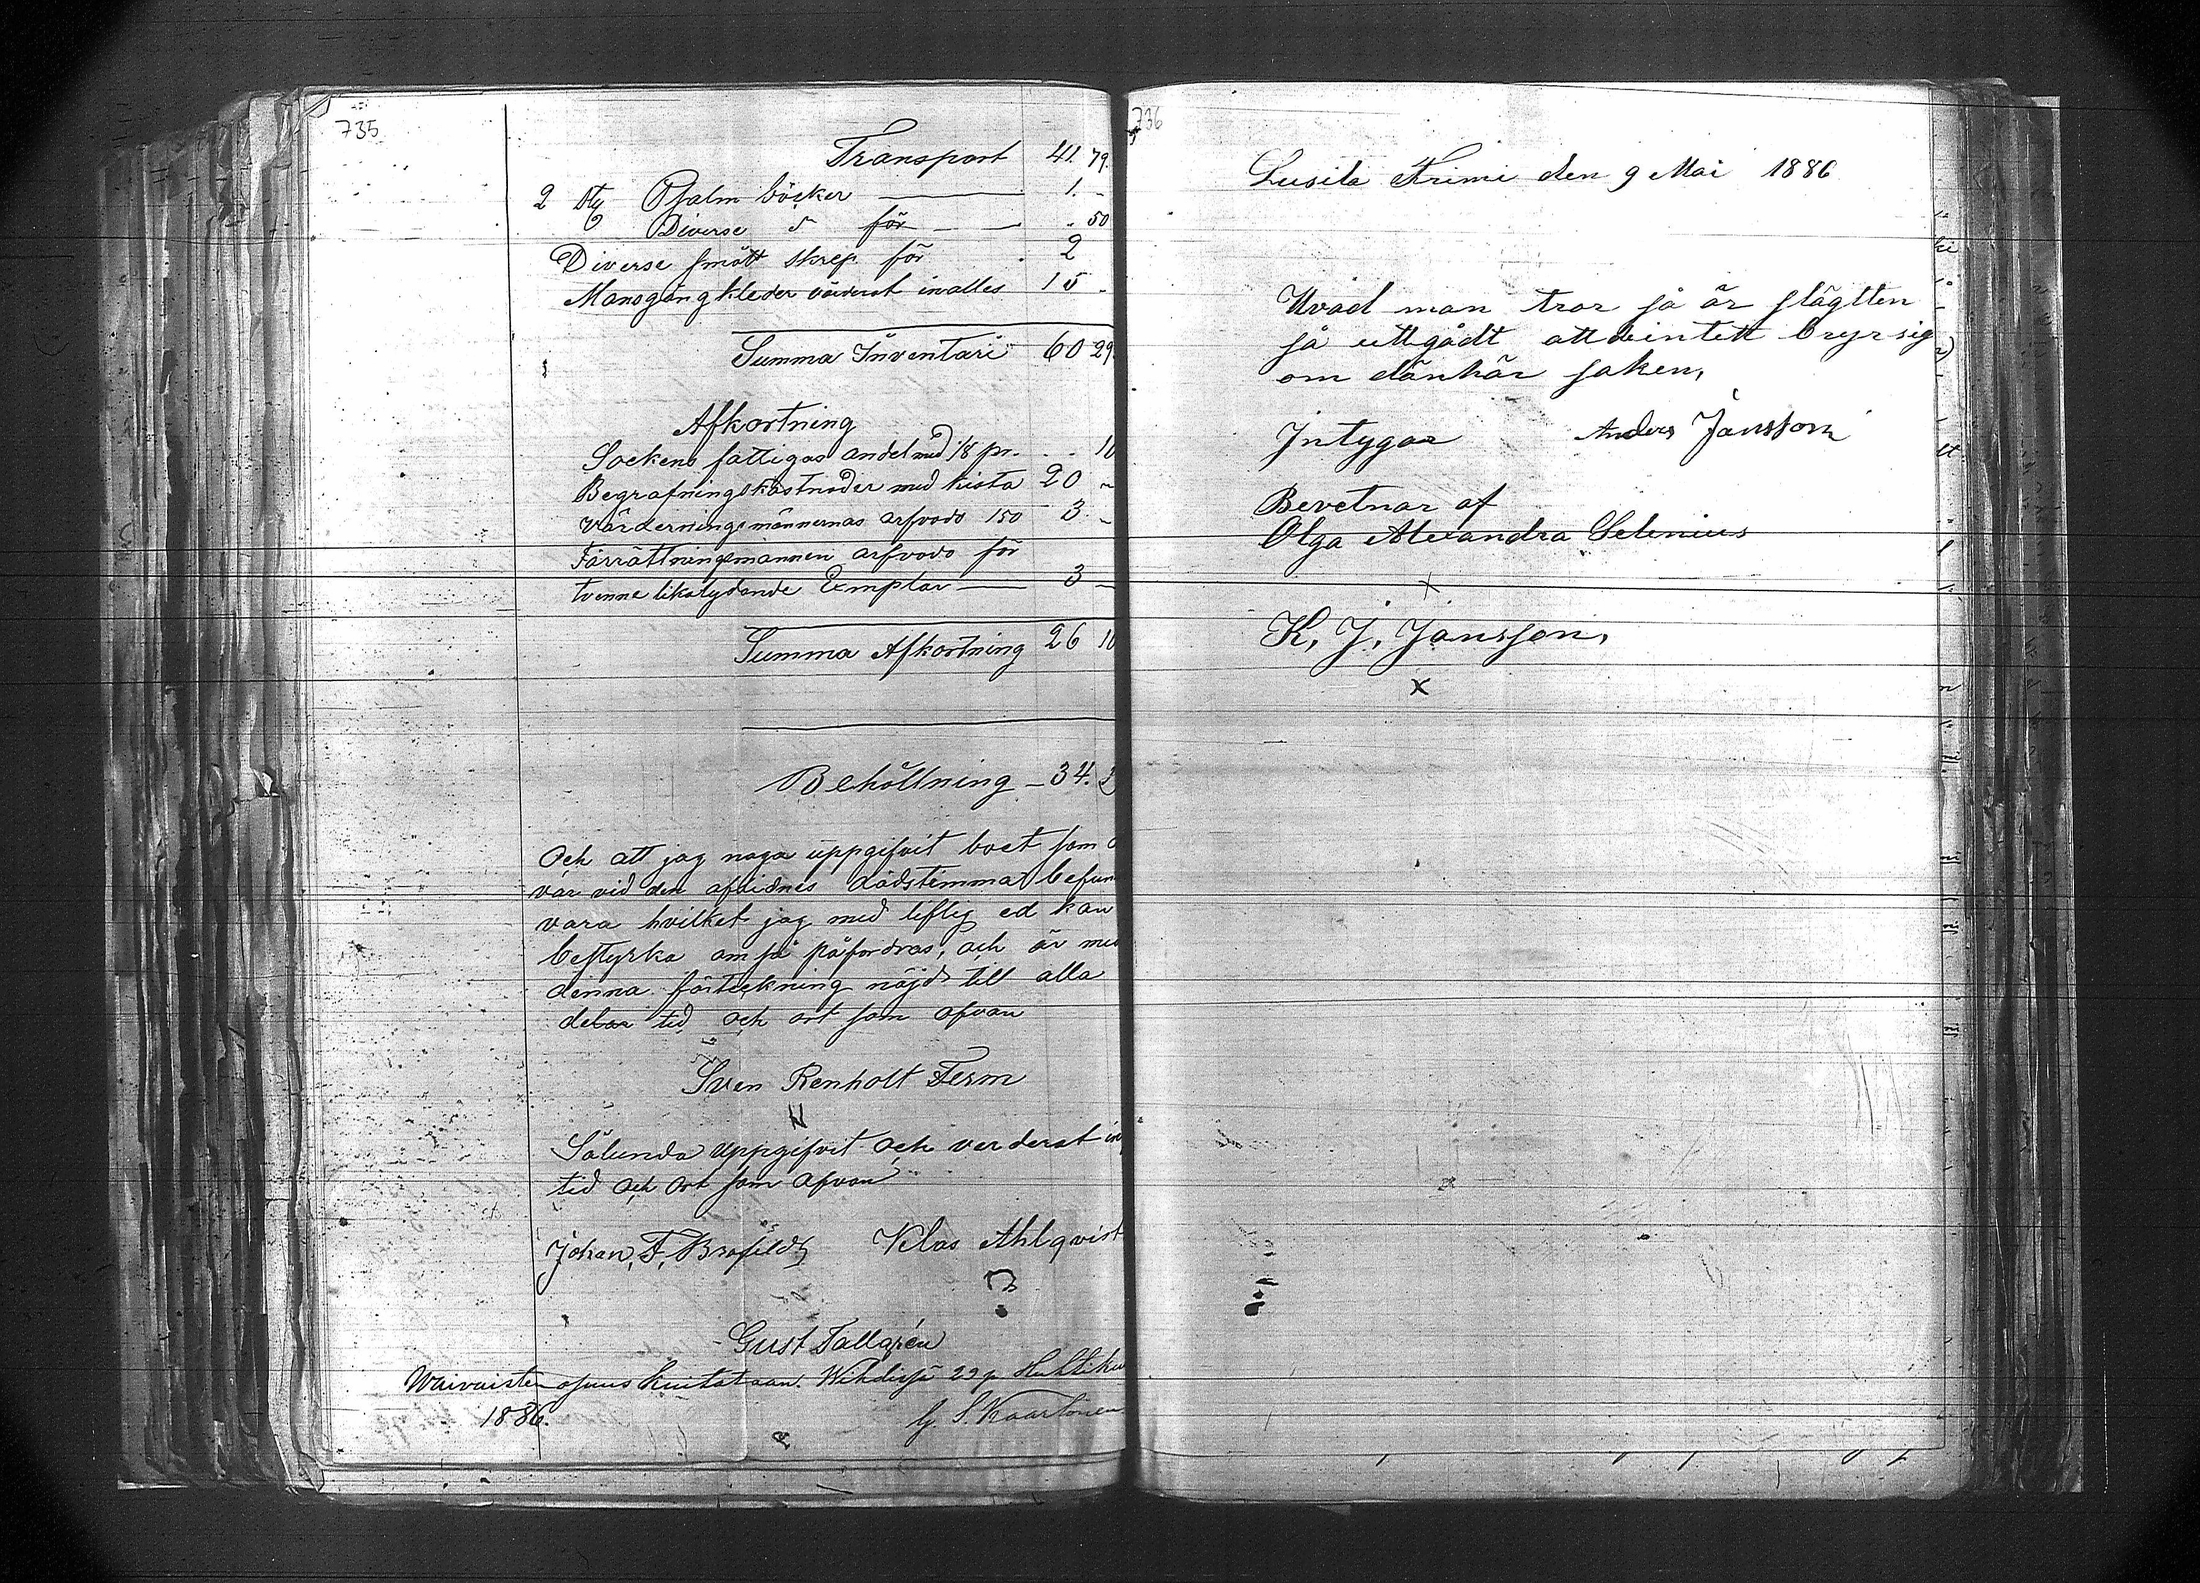 735
Transport 41. 79.
2 sty Psalm böcker 1. -
Diverse för . 50
Diverse smått skrep för . 2
Mansgångkleder värderat inalles 15 -
Summa Inventari 60 29
Afkortning
Sockens fattigas andel med 1/8 pr. . . 10
Begrafningskåstnader med kista 20 -
Värderningsmännernas arfvode 150 3. -
Förrättningsmannen arfvode för
tvenne likalydande Exmplar 3 -
Summa Afkortning 26 10
Behållning - 34.
Och att jag noga uppgifvit boet som
var vid den aflidnes dödstimma befun
vara hvilket jag med liflig ed kan
bestyrka om så påfordras, och är med
denna förteckning nöjd till alla
delar tid och ort som ofvan
Sven Renholt Ferm
Sålunda uppgifvit och verderat
tid och ort som ofvan
Johan, F, Brofeldt Klas Ahlqvist
Gust Tallgrén
Waivaisten osuus kuitataan. Wihdissä 29 p Huhtiku
1886. G. S. Kaartonen
736
Lusila Krimi den 9 Mai 1886
Hvad man tror så är slägtten
så uttgådt att de intett bryr sig
om dänhär saken,
Intygar Anders Jansson
Bevetnar af
Olga Alexandra Selenius
x
K, J, Jansson,
x